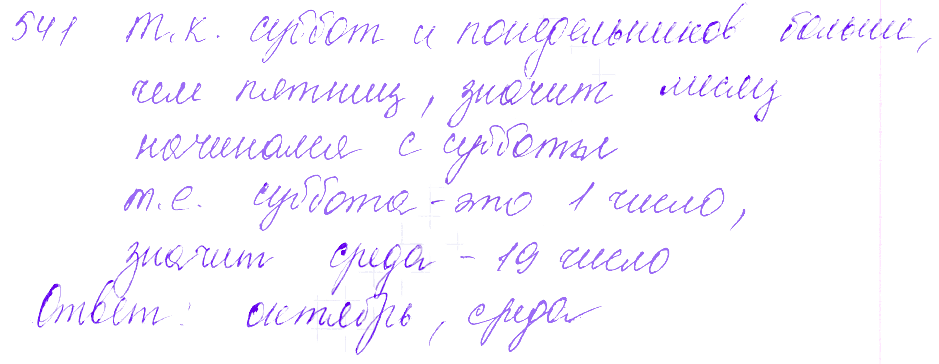 541 т.к. суббот и понедельников больше,
чем пятниц, значит месяц
начинался с субботы
т.е. суббота - это 1 число,
значит среда - 19 число
Ответ: октябрь, среда